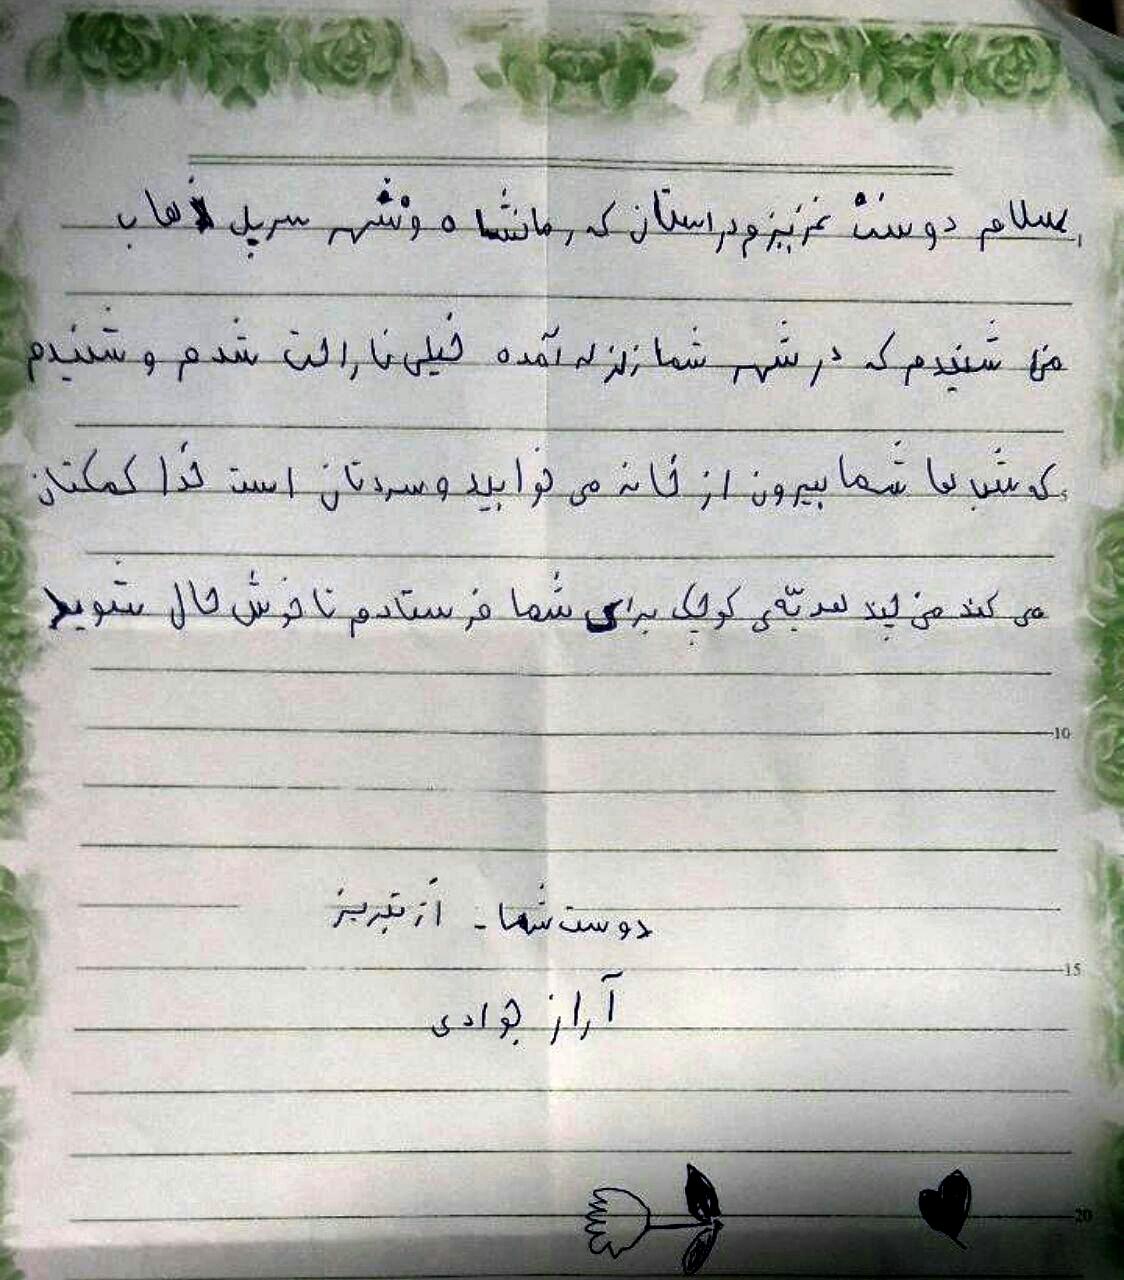 سلام دوست عزیزم در استان کرمانشاه و شهر سرپل ذهاب
من شنیدم که در شهر شما زلزله آمده خیلی ناراحت شدم و شنیدم
که شب ها شما بیرون از خانه می خوابید و سردتان است خدا کمکتان
می کند من چند هدیّه‌ی کوچک برای شما فرستادم تا خوش حال شوید
10
دوست شما - از تبریز
15
آراز جوادی
20